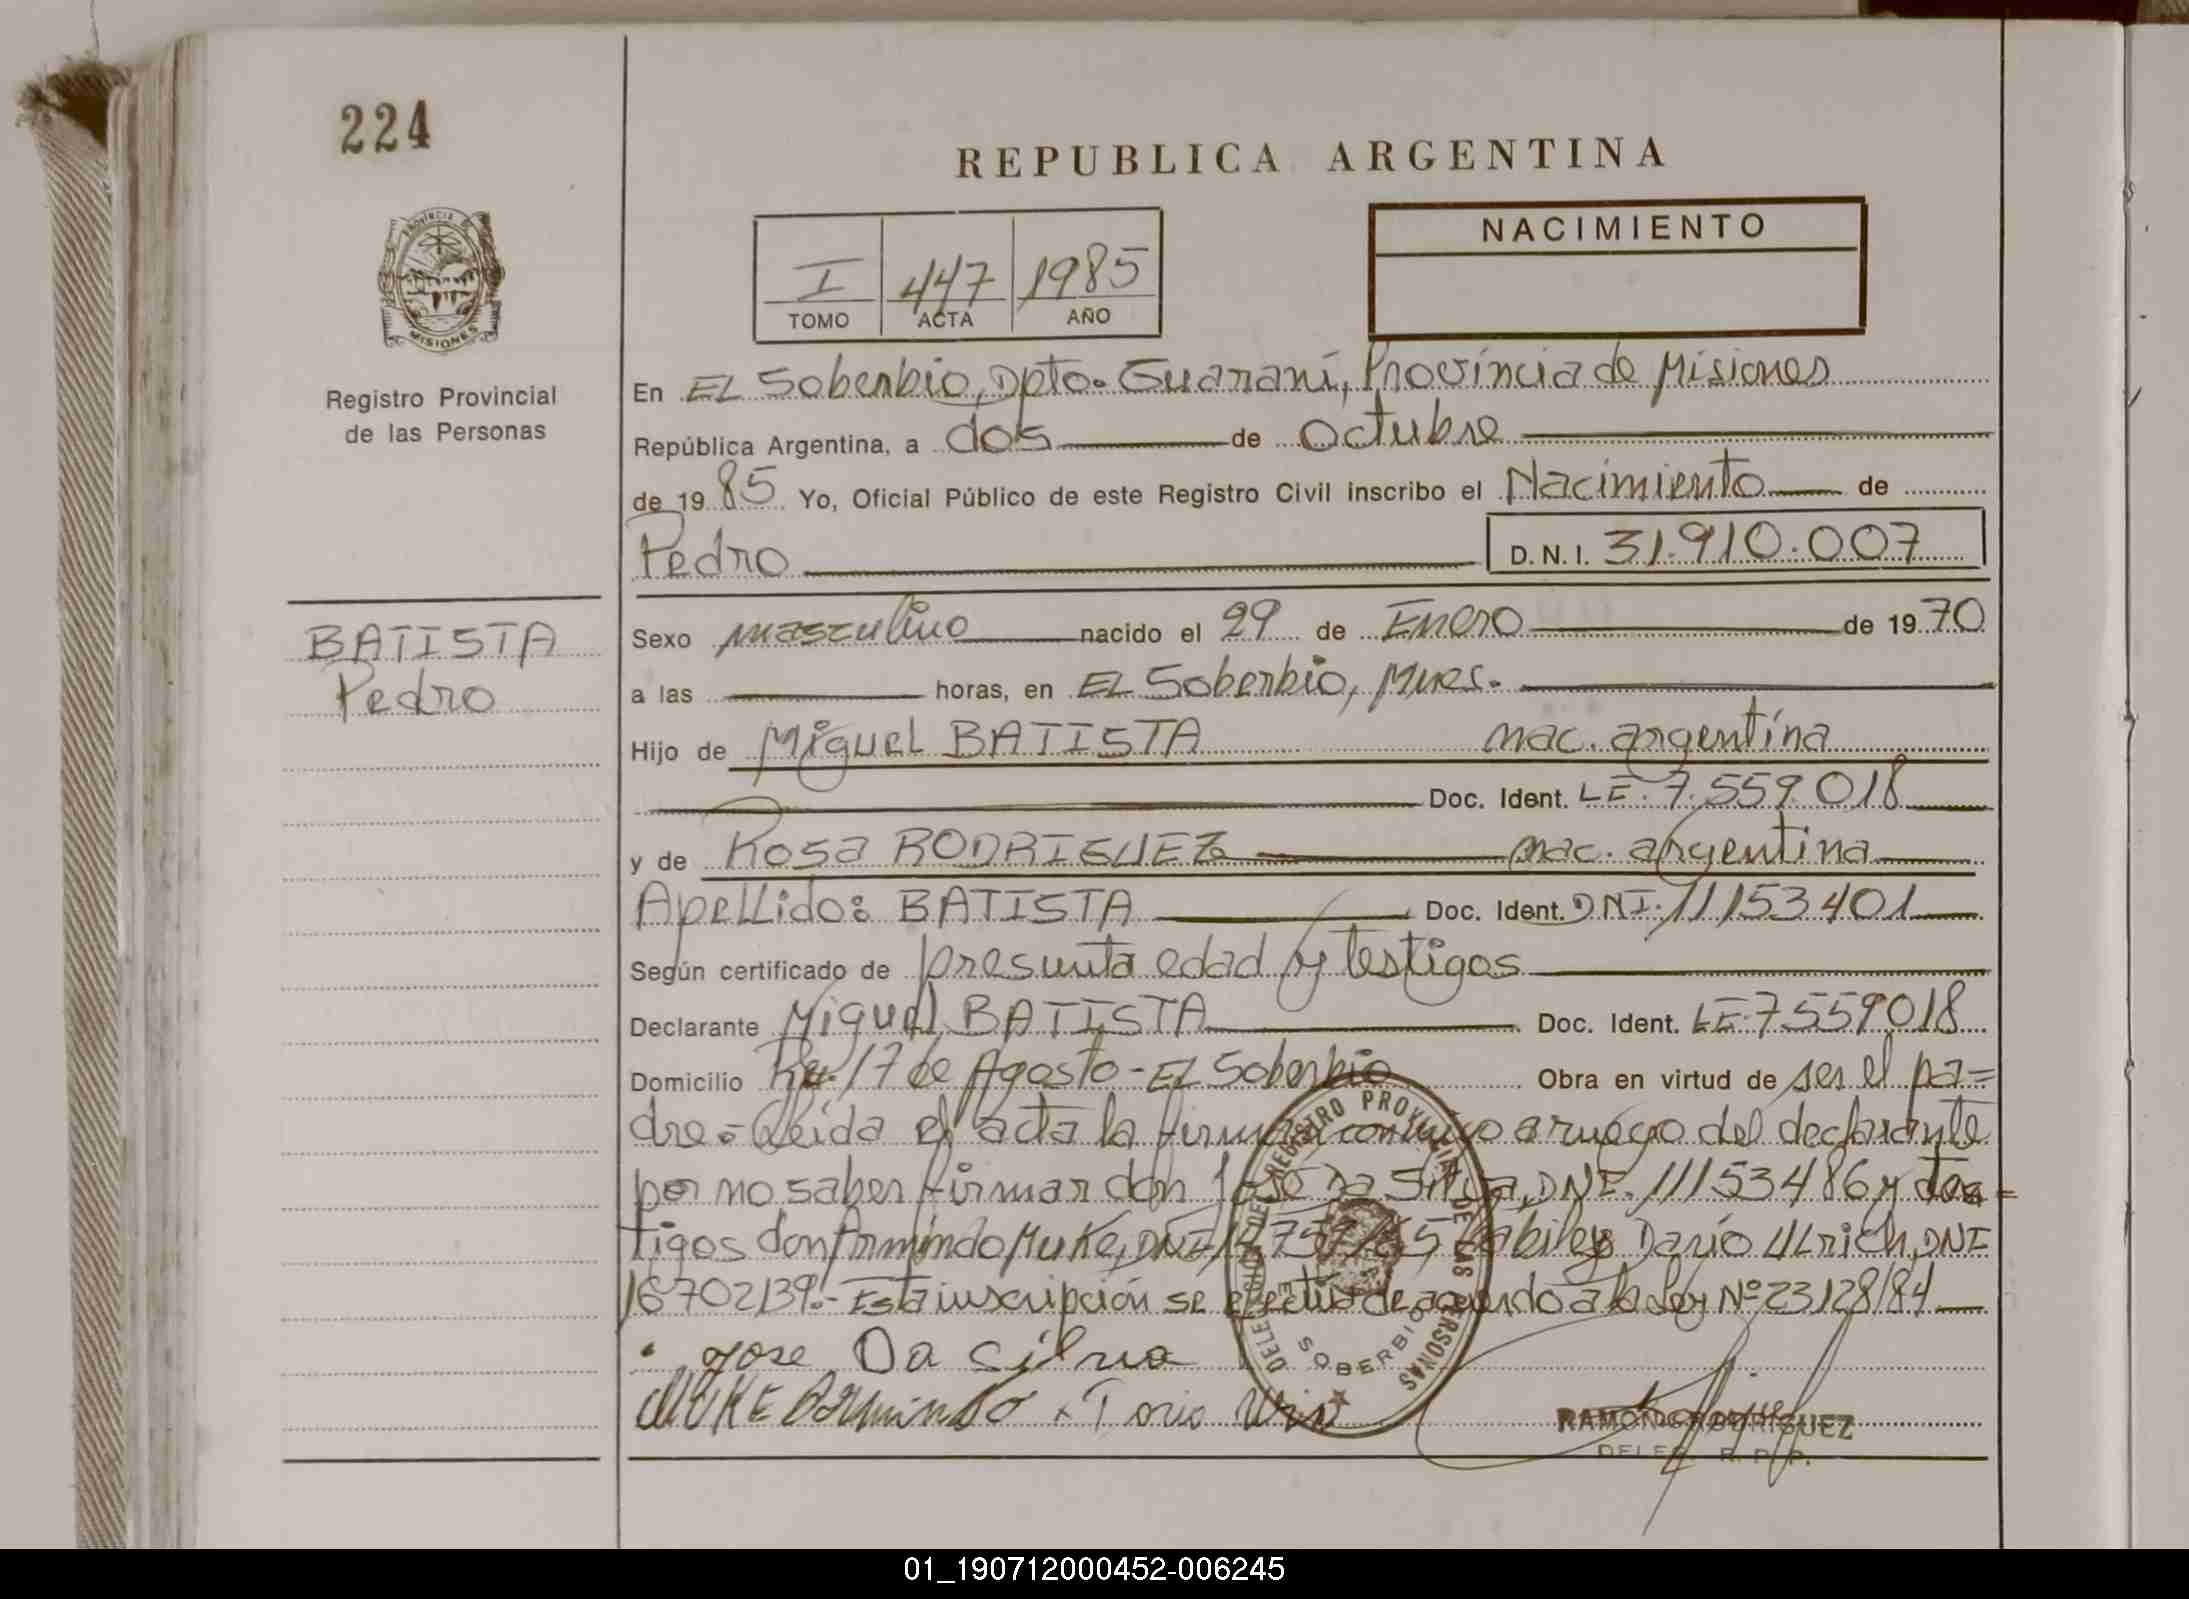 224
REPUBLICA ARGENTINA
PROVINCIA DE MISIONES
I 447 1985
TOMO ACTA AÑO
NACIMIENTO
Registro Provincial
de las Personas
En EL Soberbio, Dpto. Guaraní, Província de Misiones
República Argentina, a dos de Octubre
de 1985 Yo, Oficial Público de este Registro Civil inscribo el Nacimiento de
Pedro D.N.I. 31.910.007
BATISTA
Pedro
Sexo masculino nacido el 29 de Enero de 1970
a las horas, en EL Soberbio, Mnes.
Hijo de Miguel BATISTA nac. argentina
Doc. Ident. LE. 7.559.018
y de Rosa RODRIGUEZ nac. argentina
Apellido: BATISTA Doc. Ident. DNI. 11153401
Según certificado de presunta edad y testigos
Declarante Miguel BATISTA Doc. Ident. LE. 7559018
Domicilio 17 de Agosto - EL Soberbio Obra en virtud de ser el pa=
dre.- Leída el acta la firma conmigo a ruego del declarante
por no saber firmar don José Da Silva, DNI. 11153486 y tes=
tigos don Armindo Muke, DNI Darío ULrich, DNI
16702139.- Esta inscripción se efectúa de acuerdo a la Ley Nº 23128/84
Jose Da silva
MUKE Armindo
DELEGACION DEL REGISTRO PROVINCIAL DE LAS PERSONAS
SOBERBIO
RAMON RODRIGUEZ
DELEG. R. P. P.
01_190712000452-006245